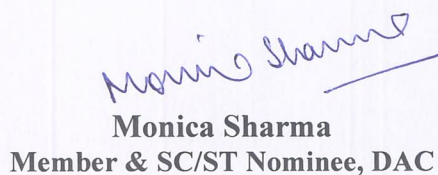 Monica Sharma
Monica Sharma
Member & SC/ST Nominee, DAC